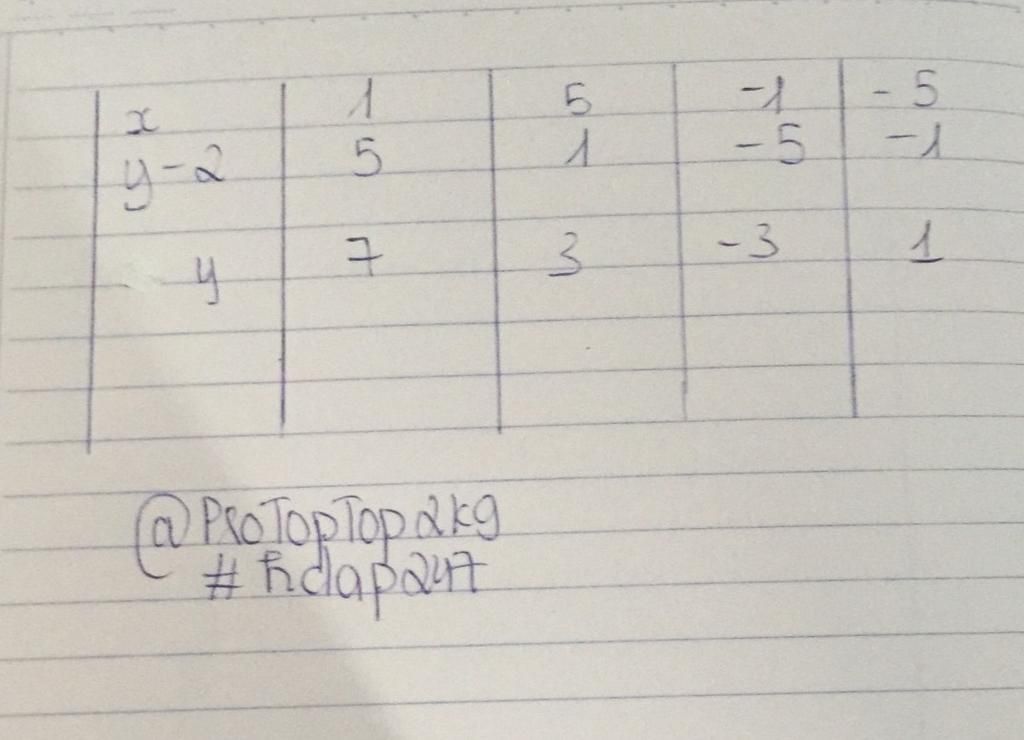 x 1 5 -1 -5
y-2 5 1 -5 -1
y 7 3 -3 1
@ProTopTop2k9
#hdap247